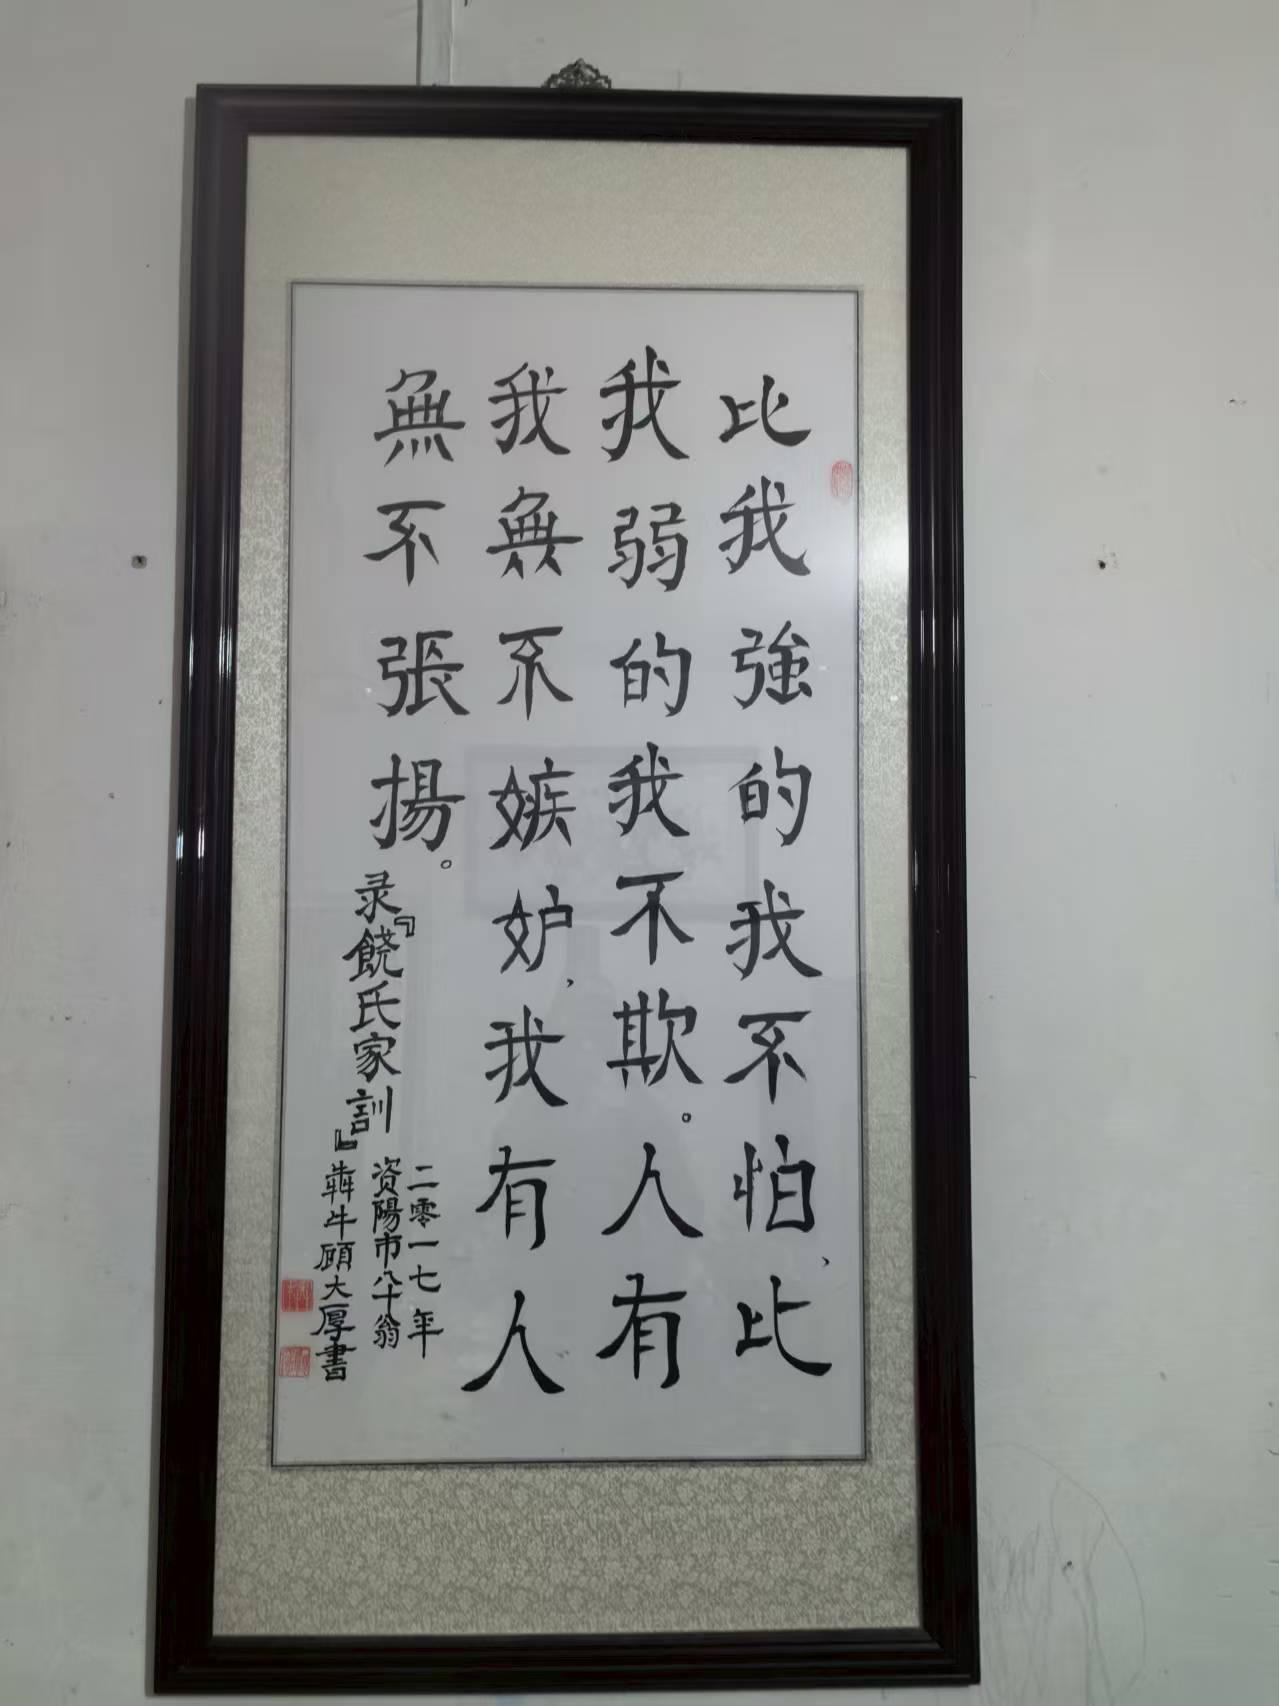 比我強的我不怕、比
我弱的我不欺。人有
我無不嫉妒、我有人
無不張揚。
录『饒氏家訓』
二零一七年
资陽市八十翁
犇牛顾大厚書